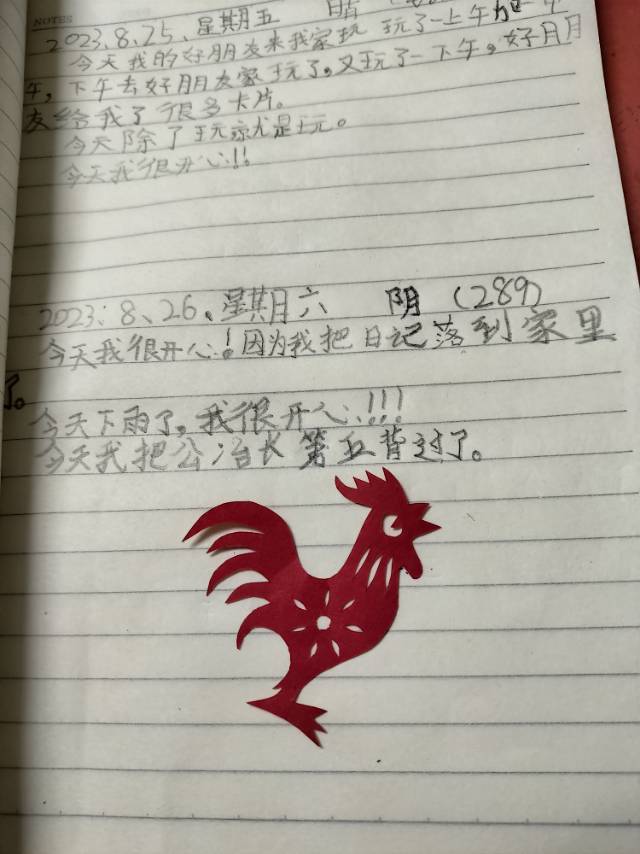 NOTES
2023.8.25、星期五 晴
今天我的好朋友来我家玩 玩了一上午
午，下午去好朋友家玩了，又玩了一下午，好朋
友给我了很多卡片。
今天除了玩就是玩。
今天我很开心!!
2023.8、26、星期六 阴 (289)
今天我很开心！因为我把日记落到家里
了。
今天下雨了，我很开心!!!
今天我把公冶长第五背过了。